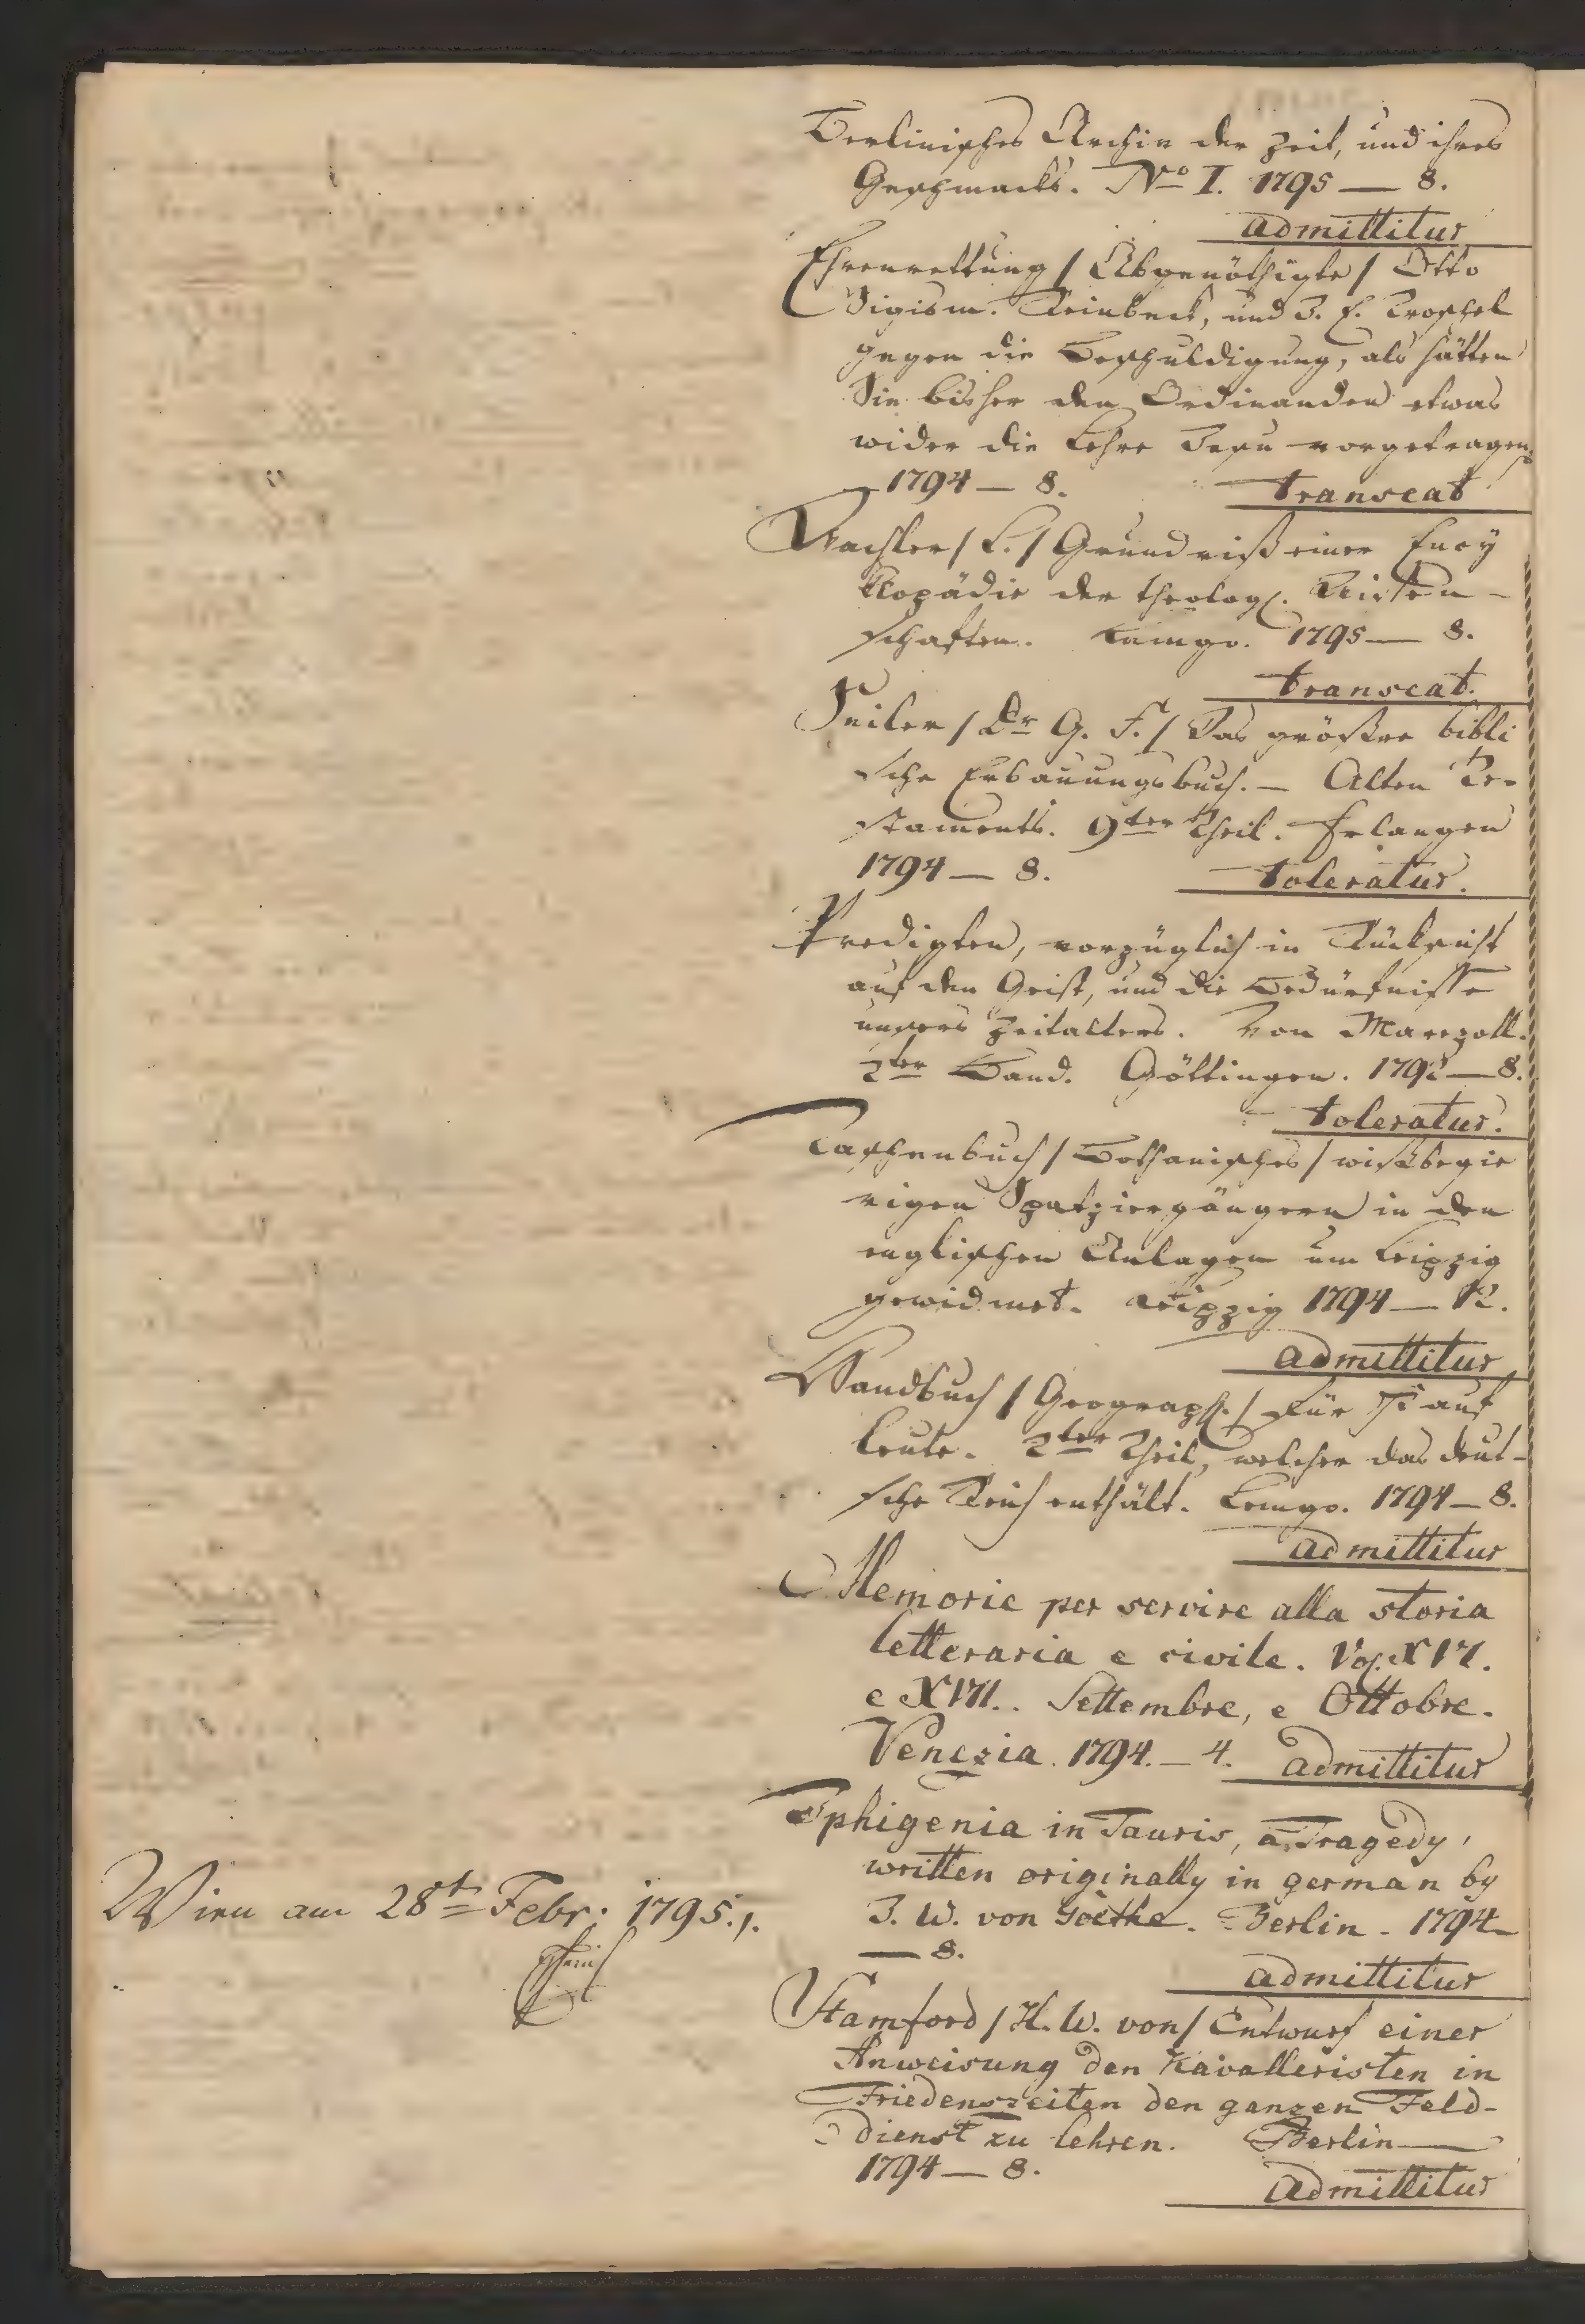 Berlinisches Archiv der Zeit, und ihres
Geschmacks. No I. 1795 — 8.
admittitur
Ehrenrettung / Abgenöthigte / Otto
Sigism. Reinbeck, und J. E. Troschel
gegen die Beschuldigung, als hätten
Sie bisher den Ordinanden etwas
wider die Lehre Jesu vorgetragen.
1794 — 8.
transeat
Wachler / L. / Grundriß einer Ency
klopädie der theolog. Wissen-
schaften. Lemgo. 1795 — 8.
transeat.
Seiler / Dr G. F. / Das größere bibli
sche Erbauungsbuch. — Alten Te-
staments. 9ter Theil. Erlangen
1794 — 8.
toleratur.
Predigten, vorzüglich in Rücksicht
auf den Geist, und die Bedürfnisse
unsers Zeitalters. Von Marezoll.
2ter Band. Göttingen. 1792 — 8.
toleratur.
Taschenbuch / Bothanisches / wißbegie
rigen Spatziergängern in den
englischen Anlagen um Leipzig
gewidmet. Leipzig 1794 — 12.
admittitur
Handbuch / Geograph. / für Kauf
leute. 2ter Theil, welcher das deut-
sche Reich enthält. Lemgo. 1794 — 8.
admittitur
Memorie per servire alla storia
letteraria e civile. Vol. XVI.
e XVII. Settembre, e Ottobre.
Venezia. 1794. — 4. admittitur
Iphigenia in Tauris, a Tragedy,
written originally in german by
J. W. von Goethe. Berlin. 1794
— 8.
admittitur
Stamford / H. W. von / Entwurf einer
Anweisung den Kavalleristen in
Friedenszeiten den ganzen Feld-
dienst zu lehren. Berlin —
1794 — 8.
admittitur
Wien am 28t Febr. 1795.